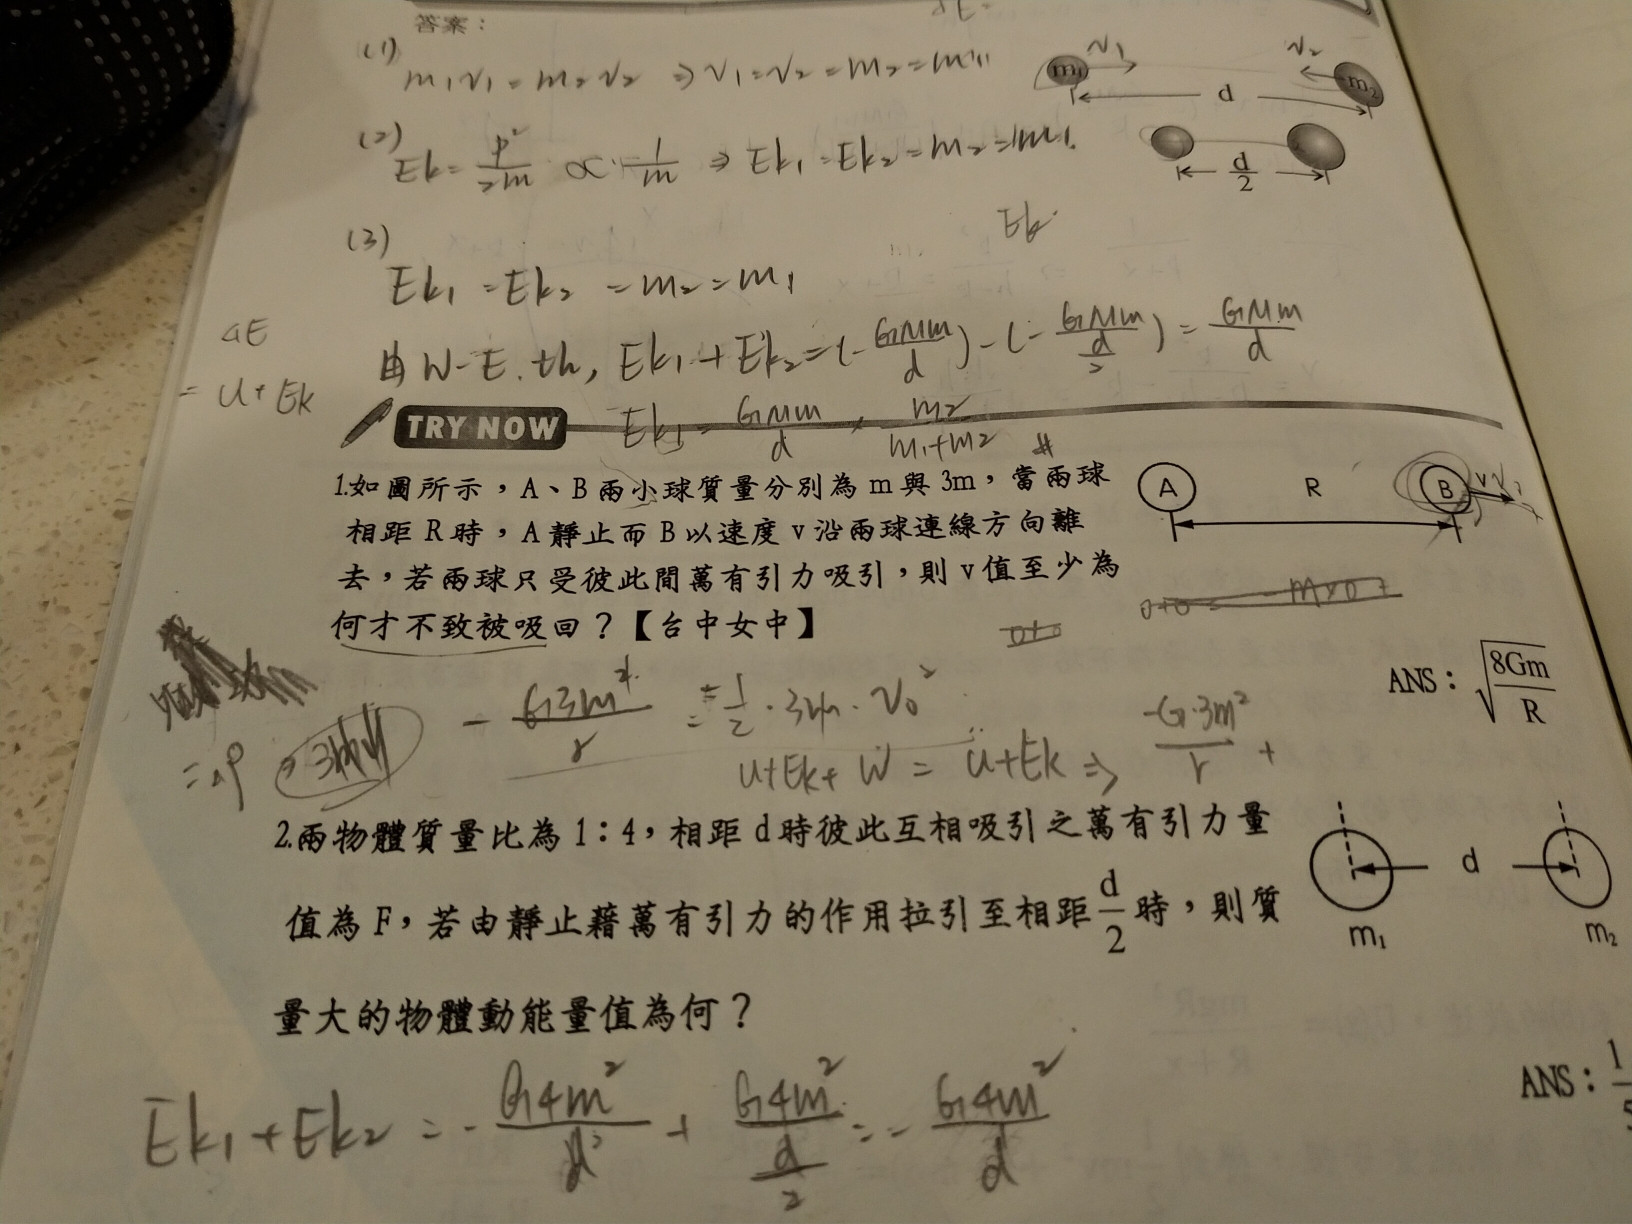 答案：
(1)
m₁v₁ = m₂v₂ ⇒ v₁:v₂ = m₂:m₁
v₁
v₂
m₁
m₂
d
(2)
Ek = p²/2m ∝ 1/m ⇒ Ek₁:Ek₂ = m₂:m₁
d/2
(3)
Ek
Ek₁:Ek₂ = m₂:m₁
由 W-E. th, Ek₁ + Ek₂ = (-GMm/d) - (-GMm/(d/2)) = GMm/d
= U + Ek
TRY NOW
Ek₁ = GMm/d × m₂/(m₁+m₂) #
1.如圖所示，A、B兩小球質量分別為 m 與 3m，當兩球
相距 R 時，A 靜止而 B 以速度 v 沿兩球連線方向離
去，若兩球只受彼此間萬有引力吸引，則 v 值至少為
何才不致被吸回？【台中女中】
A
R
B
v
ANS：√(8Gm/R)
- G3m²/r = ½ · 3m · v₀²
U+Ek+ W = U+Ek ⇒ -G·3m²/r +
2.兩物體質量比為 1：4，相距 d 時彼此互相吸引之萬有引力量
值為 F，若由靜止藉萬有引力的作用拉引至相距 d/2 時，則質
量大的物體動能量值為何？
d
m₁
m₂
ANS：1/5
Ek₁ + Ek₂ = - G4m²/d + G4m²/(d/2) = - G4m²/d